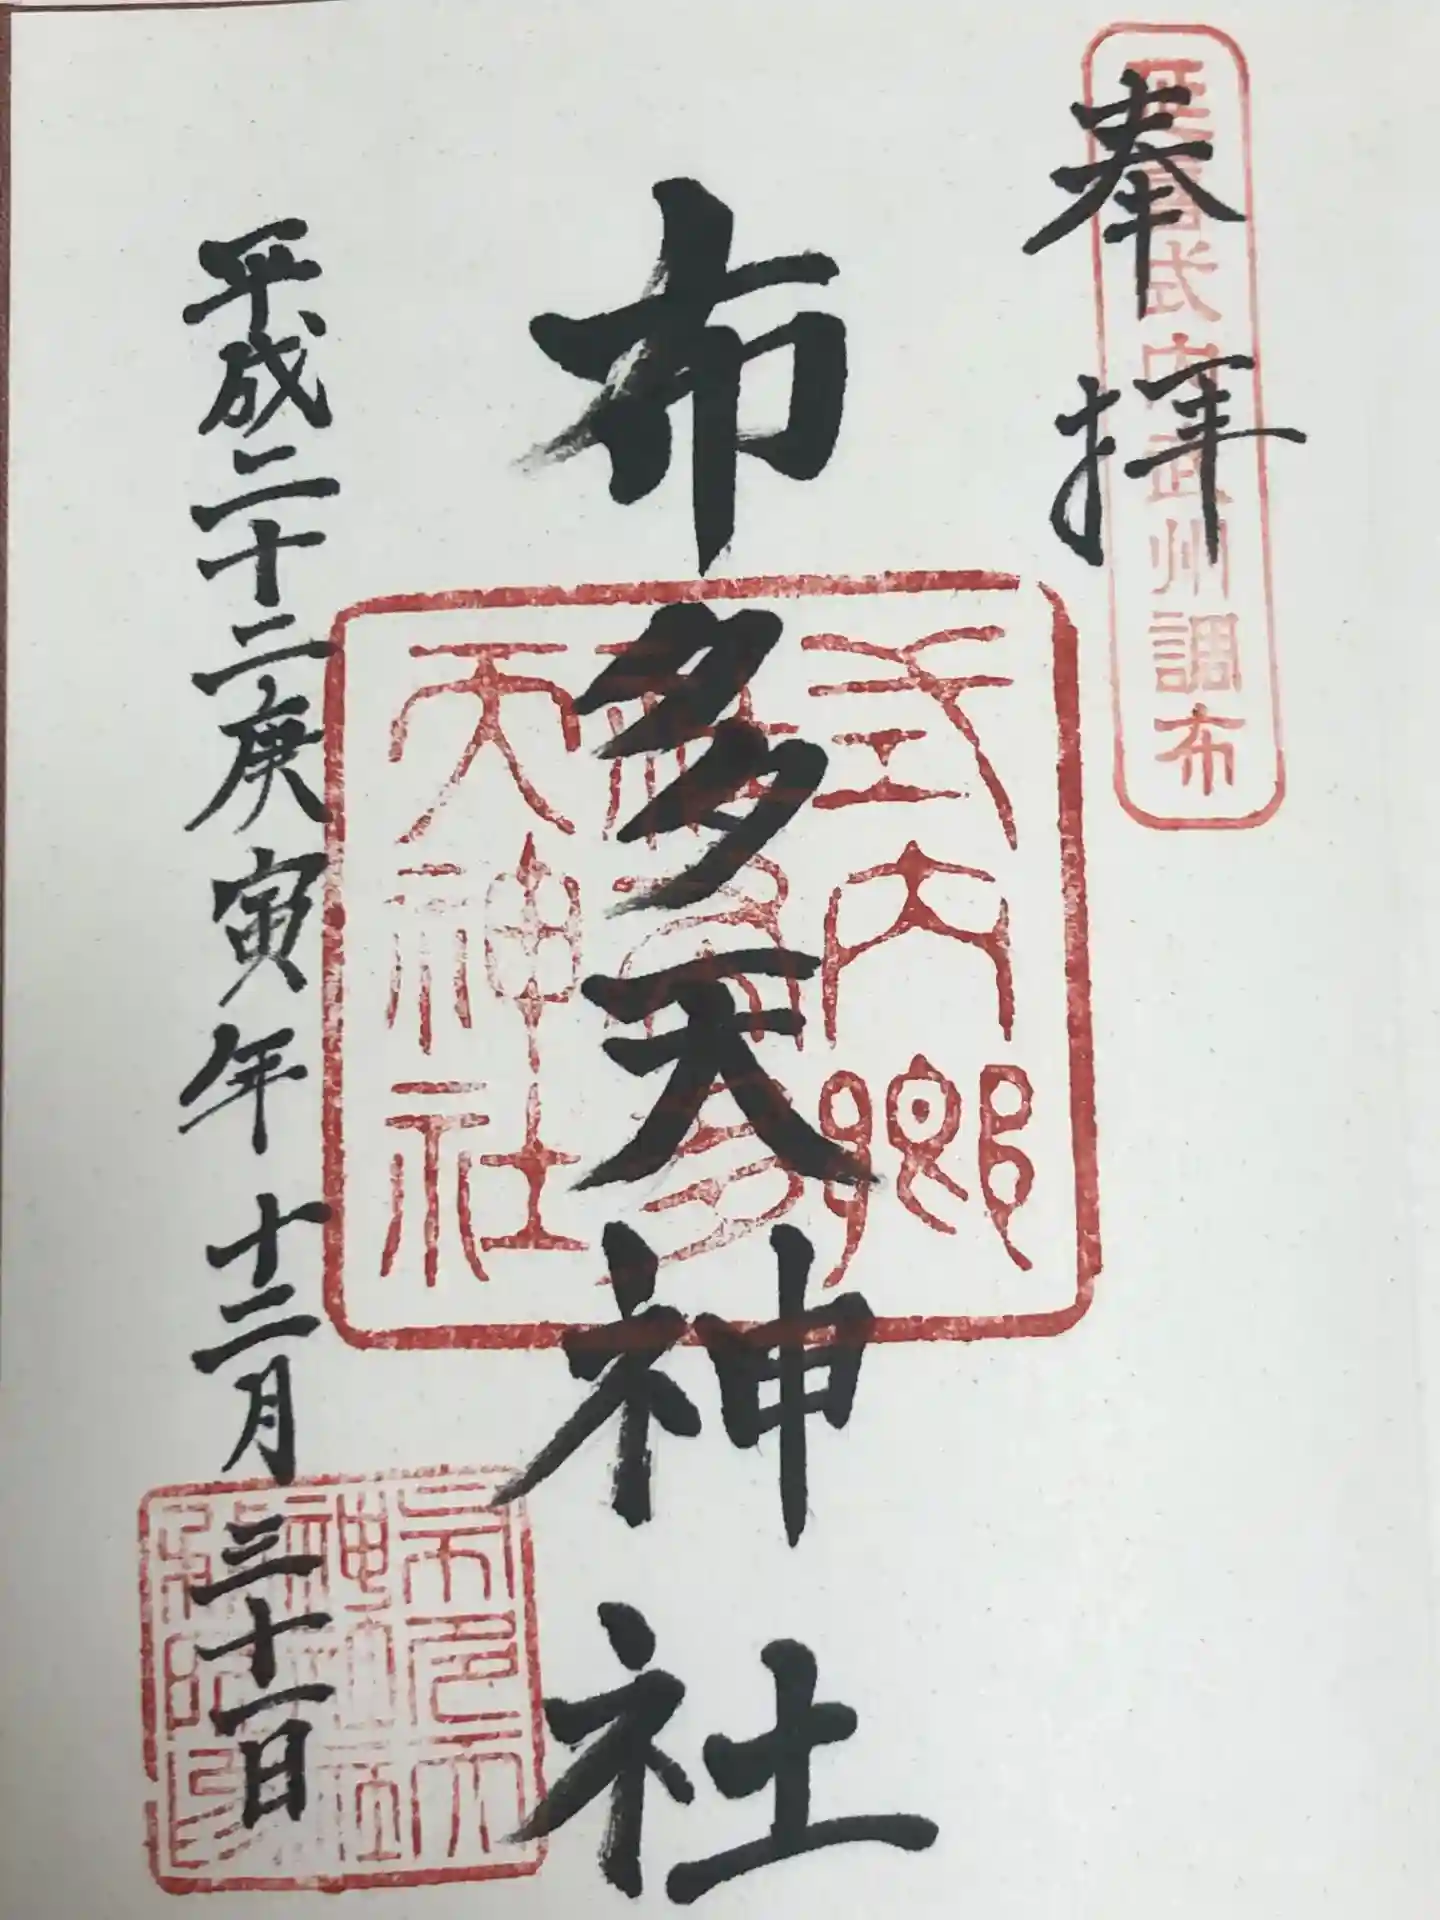 奉拝
延喜式内武州調布
布多天神社
式内郷社布多天神社
平成二十二庚寅年十二月三十一日